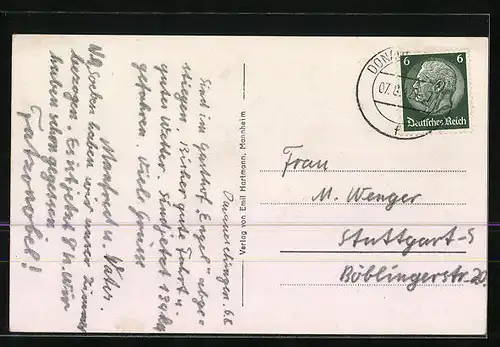 Donaueschingen. 6.8
Sind im Gasthof „Engel“ abge-
stiegen. Bisher gute Fahrt u.
gutes Wetter. Sind jetzt 134 km
gefahren. Viele Grüsse
Manfred u. Vater.
haben wir unser Zimmer
bezogen. Es ist jetzt 8 h. Wir
haben schon gegessen
Verlag von Emil Hartmann, Mannheim
DONAU
07.8.
6 6
Deutsches Reich
Frau
M. Wenger
Stuttgart-S
Böblingerstr. 20.